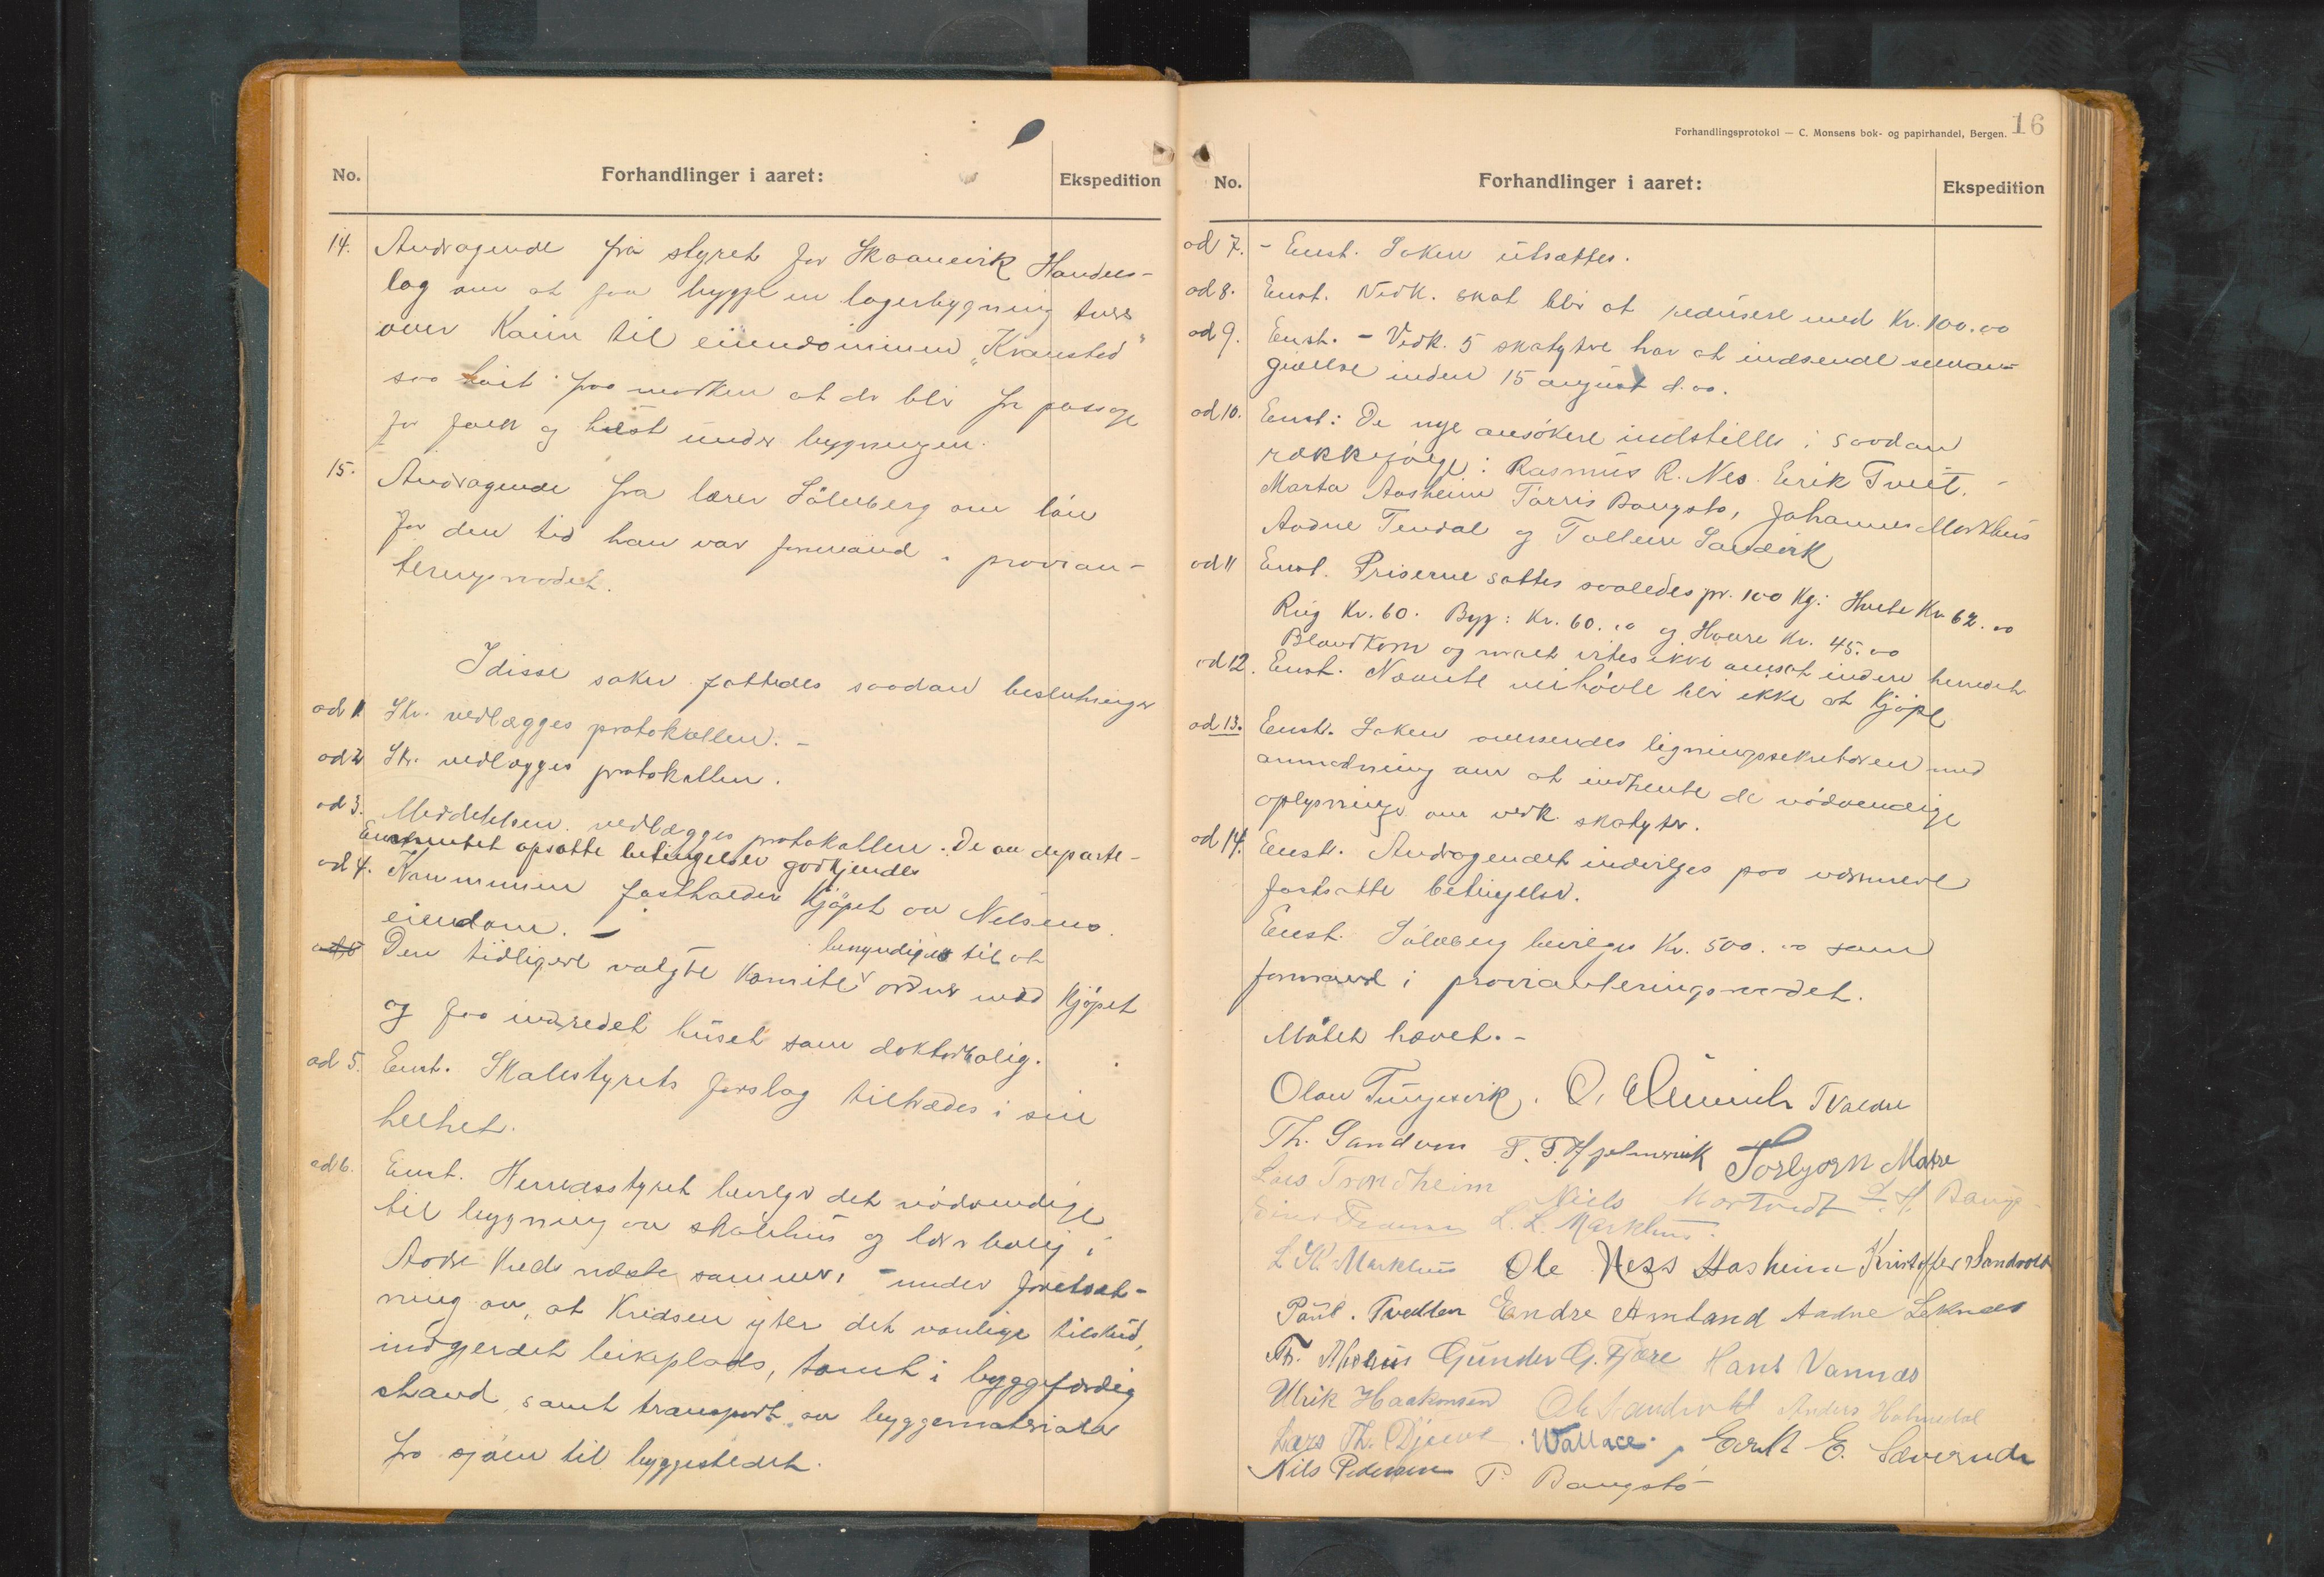 No. Forhandlinger i aaret: Ekspedition
14. Andragende fra styret for Skaanevik Handels-
lag om at faa bygge en lagerbygning tvers
over Kaien til eiendommen "Kranstad"
saa høit fra marken at der blir fri passage
for folk og hest under bygningen.
15. Andragende fra lærer Sölvberg om lön
for den tid han var formand i provian-
teringsraadet.
I disse saker fattedes saadan beslutninger
ad 1 Skr. vedlægges protokollen. -
ad 2 Skr. vedlægges protokollen.
ad 3. Meddelelsen vedlægges protokollen. De av departe-
mentet opsatte betingelser godkjendes
ad 4. Enst. Kommunen fastholder Kjöpet av Nelsens
eiendom. -
benyndiges til at
Den tidligere valgte Komite ordne med Kjöpet
og faa indredet huset som doktorbolig.
ad 5. Enst. Skolestyrets forslag tiltrædes i sin
helhet.
ad 6. Enst. Herredsstyret bevilger det nödvendige
til bygning av skolehus og lærerbolig i
Aakre Kreds næste sommer, - under forutsæt-
ning av, at Kredsen yter det vanlige tilskud,
indgjerdet leikeplads, tomt i byggefærdig
stand, samt transport av byggematerialer
fra sjöen til byggestedet.
Forhandlingsprotokol — C. Monsens bok- og papirhandel, Bergen. 16
No. Forhandlinger i aaret: Ekspedition
ad 7. - Enst. Saken utsættes.
ad 8. Enst. Vedk. skat blir at redusere med Kr. 100.00
ad 9. Enst. - Vedk. 5 skatytere har at indsende selvan-
givelse inden 15 august d.aa.
ad 10. Enst: De nye ansökere indstilles i saadan
rækkefölge: Rasmus R. Nes. Erik Tveit. -
Marta Aasheim Torris Baugstø, Johannes Markhus
Aadne Tendal og Tollem Sandvik
ad 11 Enst. Priserne sattes saaledes pr. 100 Kg: Hvete Kr. 62.00
Rug Kr. 60. Byg: Kr. 60.00 og Havre Kr. 45.00
Blandkorn og malt vites ikke avlsat inden herredet
ad 12. Enst. Nævnte veihövle blir ikke at Kjöpe
ad 13. Enst. Saken oversendes ligningssekretæren med
anmodning om at indhente de nödvendige
oplysninger om vedk. skatyter.
ad 14. Enst. Andragendet indvilges paa nærmere
fastsatte betingelser.
Enst. Sölvberg bevilges Kr. 500.00 som
formand i provianteringsraadet.
Mötet hævet. -
Olav Tungesvik. O. Tvaedne
Th. Sandven T. T. Hjelmervik Torbjørn Matre
Lars Trondheim Niels Mortvedt
L. L. Markhus.
L K Markhus Ole Ness Aasheim Kristoffer Sandvold
Paul. Tvedten Endre Amland Aadne Leknes
Th. Gunder G. Fjære Hans Vannes
Ulrik Haakonsen Ole Sandvold Anders Holmedal
Lars Th. Djuve. Wallace. Eerik E. Sævereide
Nils Pedersen P. Baugstö